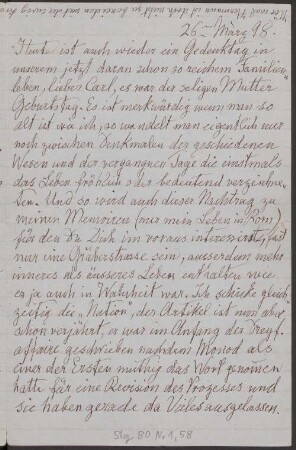 26 März 98.
Heute ist auch wieder ein Gedenktag in
unserem jetzt daran schon so reichem Familien-
leben, lieber Carl, es war der seligen Mutter
Geburtstag. Es ist merkwürdig wenn man so
alt ist wie ich, so wandelt man eigentlich nur
noch zwischen Denkmalen der geschiedenen
Wesen und der vergangnen Tage die einstmals
das Leben fröhlich oder bedeutend verzeichne-
ten. Und so wird auch dieser Nachtrag zu
meinen Memoiren (nur mein Leben in Rom)
für den Du Dich im voraus interessirst, fast
nur eine Gräberstrasse sein, ausserdem mehr
inneres als äusseres Leben enthalten wie
es ja auch in Wahrheit war. Ich schicke gleich-
zeitig die „Nation", der Artikel ist nun aber
schon verjährt er war im Anfang der Dreyf.
affaire geschrieben nachdem Monod als
einer der Ersten muthig das Wort genommen
hatte für eine Revision des Prozesses und
sie haben gerade da Vieles ausgelassen.
Slg. 80 N. 1,58